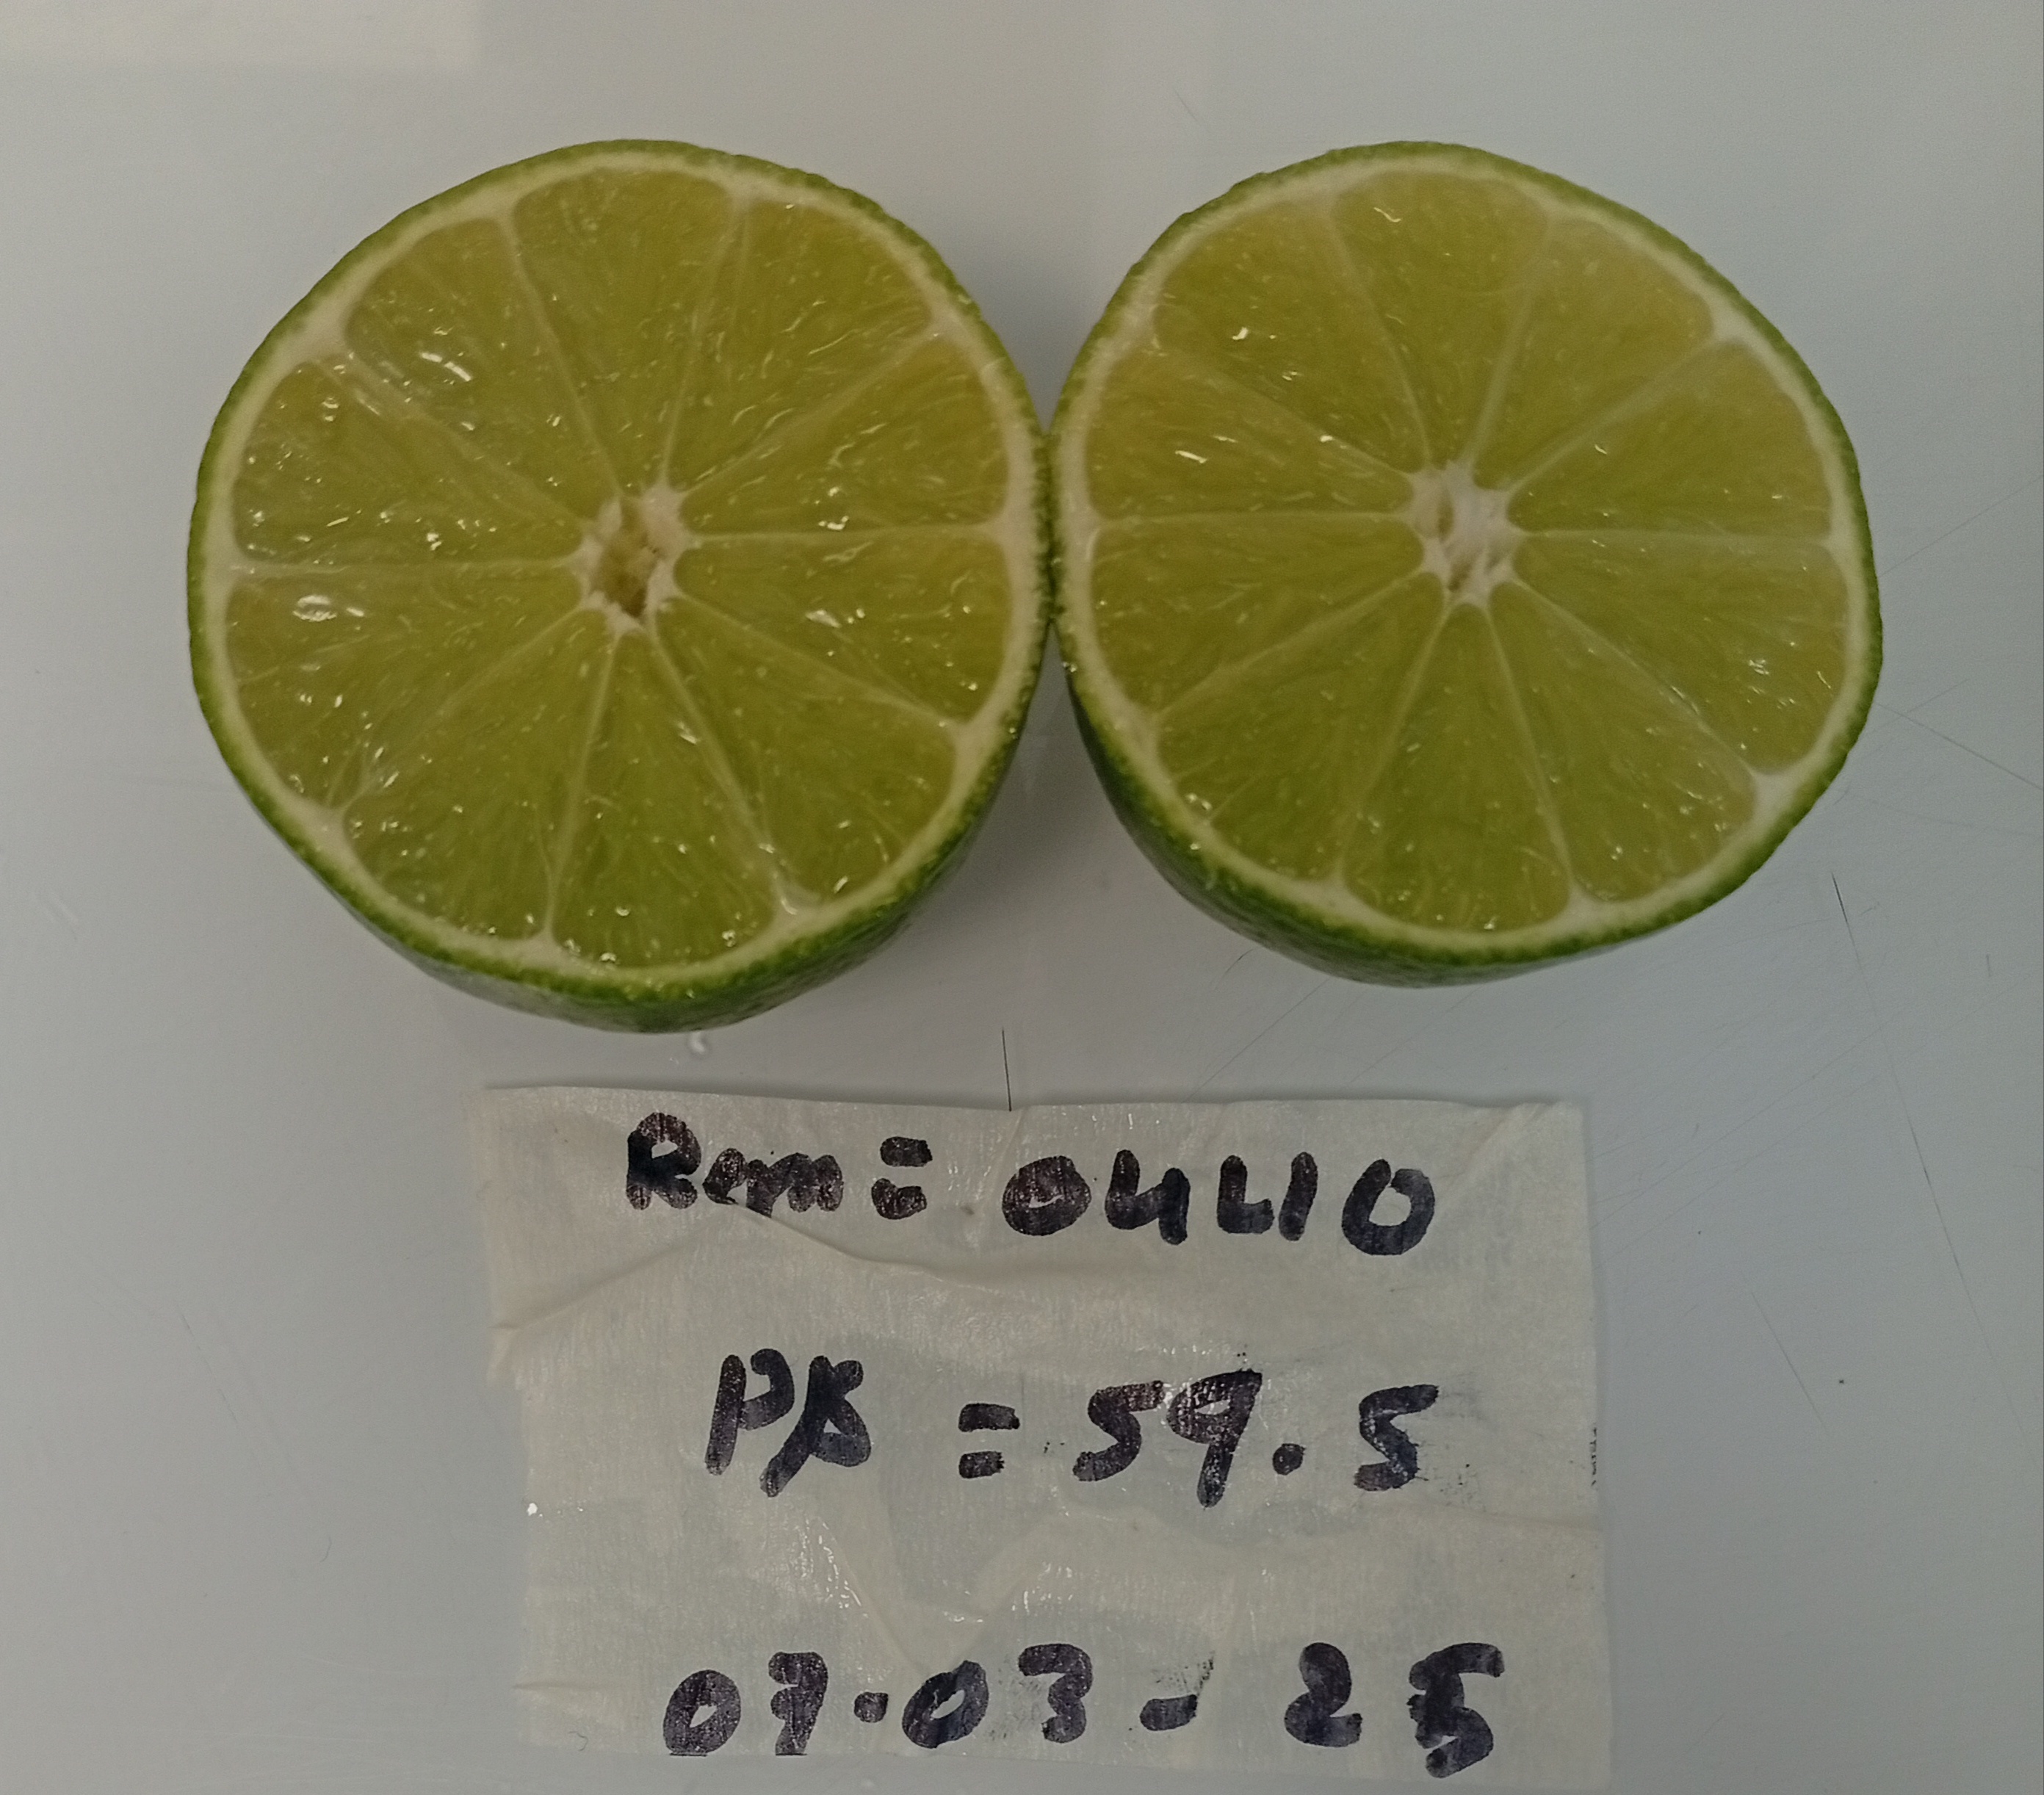 Rm = 04410
PX = 59.5
07.03-25